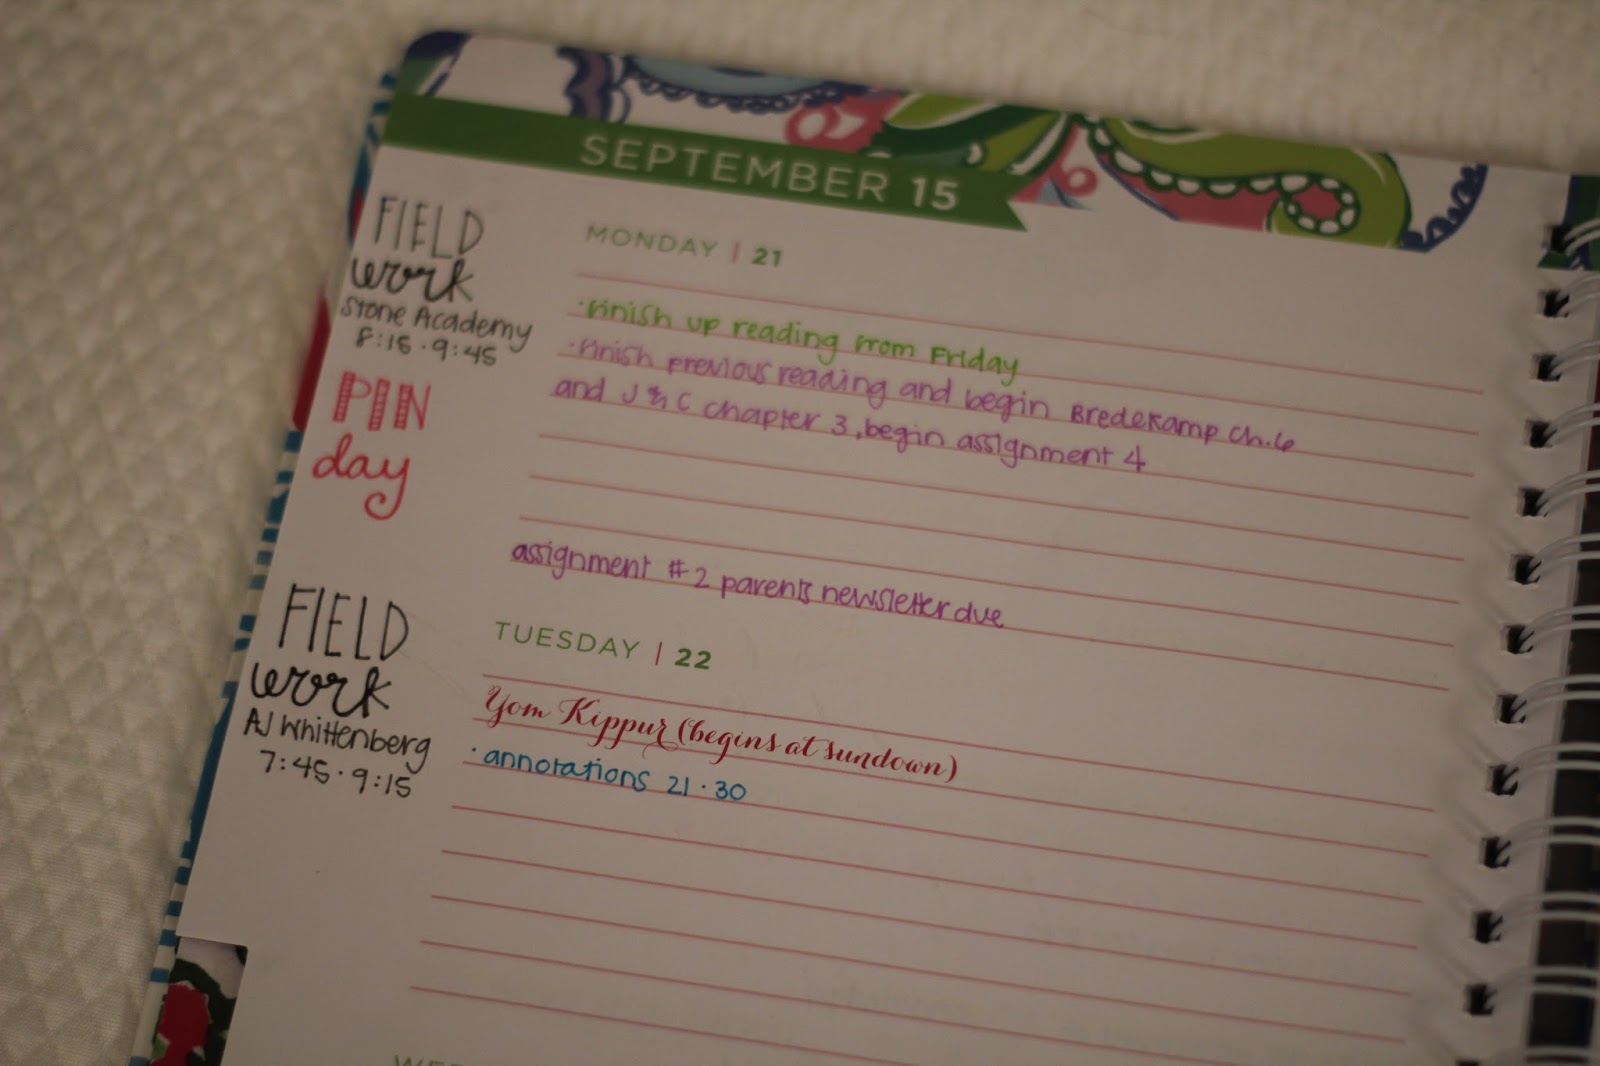 SEPTEMBER 15
FIELD
work
Stone Academy
8:15 · 9:45
PIN
day
MONDAY | 21
· Finish up reading from Friday
· Finish previous reading and begin Bredekamp ch. 6
and J & C chapter 3, begin assignment 4
assignment #2 parents newsletter due
FIELD
work
AJ Whittenberg
7:45 · 9:15
TUESDAY | 22
Yom Kippur (begins at sundown)
· annotations 21 · 30